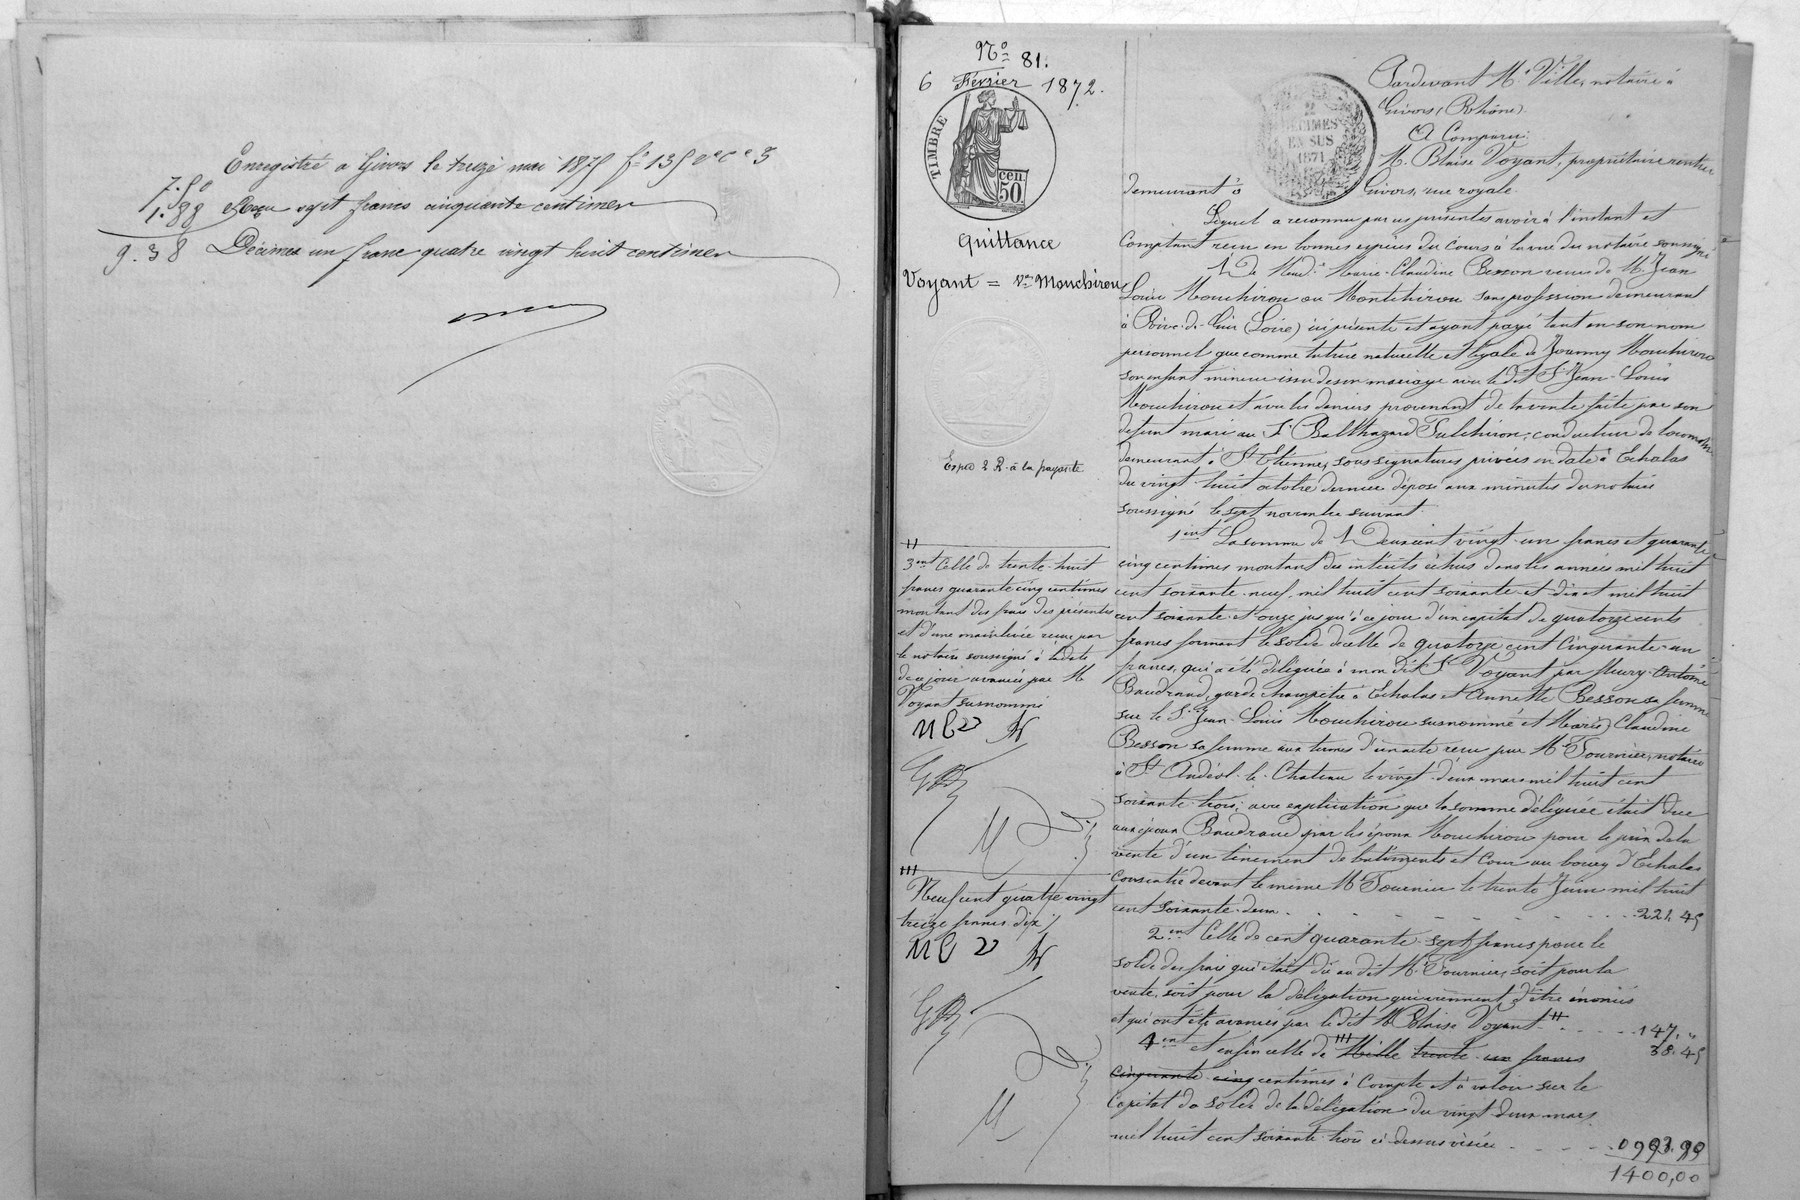 Enregistré à Givors le treize mai 1875 f° 135 v° c° 3
7.50 Reçu sept francs cinquante centimes
1.88
9.38 Décimes un franc quatre vingt huit centimes
N° 81.
6 Février 1872.
TIMBRE
50 cen
Quittance
Voyant = Vve Mouchirou
Expé 2 R. à la payante
3ent Celle de trente-huit
francs quarante cinq centimes
montant des frais des présentes
et d'une mainlevée reçue par
le notaire soussigné à la date
de ce jour avancés par M
Voyant susnommé
Neuf cent quatre vingt
treize francs dix
2
DÉCIMES
EN SUS
1871
Pardevant Me Ville, notaire à
Givors (Rhône)
A Comparu:
M. Blaise Voyant, propriétaire rentier
demeurant à Givors, rue royale.
Lequel a reconnu par ces présentes avoir à l'instant et
comptant reçu en bonnes espèces du cours à la vue du notaire soussigné
De Made Marie-Claudine Besson veuve de M. Jean
Louis Mouchirou ou Montchirou sans profession demeurant
à Rive-de-Gier (Loire) ici présente et ayant payé tant en son nom
personnel que comme tutrice naturelle et légale de Joanny Mouchirou
son enfant mineur issu de son mariage avec le dit Sr Jean-Louis
Mouchirou et avec les deniers provenant de la vente faite par son
défunt mari au Sr Balthazard Fulchiron, conducteur de locomotives
demeurant à St Etienne, sous signatures privées en date à Echalas
du vingt-huit octobre dernier déposé aux minutes du notaire
soussigné le sept novembre suivant
1ent La somme de Deux cent vingt-un francs et quarante
cinq centimes montant des intérêts échus dans les années mil huit
cent soixante-neuf, mil huit cent soixante-et-dix et mil huit
cent soixante-et-onze jusqu'à ce jour d'un capital de quatorze cents
francs formant le solde de celle de quatorze cent cinquante-un
francs, qui a été déléguée à mon dit Sr Voyant par Fleury-Antoine
Baudrand, garde champêtre à Echalas et Annette Besson sa femme
sur le Sr Jean-Louis Mouchirou susnommé et Marie Claudine
Besson sa femme aux termes d'un acte reçu par Me Fournier, notaire
à St Andéol-le-Chateau le vingt-deux mars mil huit cent
soixante-trois; avec explication que la somme déléguée était due
aux époux Baudrand par les époux Mouchirou pour le prix de la
vente d'un tènement de bâtiments et cour au bourg d'Echalas
consentie devant le même Me Fournier le trente Juin mil huit
cent soixante-deux . . . 221.45
2ent Celle de cent quarante-sept francs pour le
solde des frais qui était dû au dit Me Fournier, soit pour la
vente, soit pour la délégation qui viennent d'être énoncés
et qui ont été avancés par le dit M. Blaise Voyant . . . 147. "
38.45
4ent et enfin celle de Mille trente-un francs
cinquante cinq centimes à compte et à valoir sur le
capital du solde de la délégation du vingt-deux mars
mil huit cent soixante-trois ci-dessus visée . . . 0993.99
1400,00